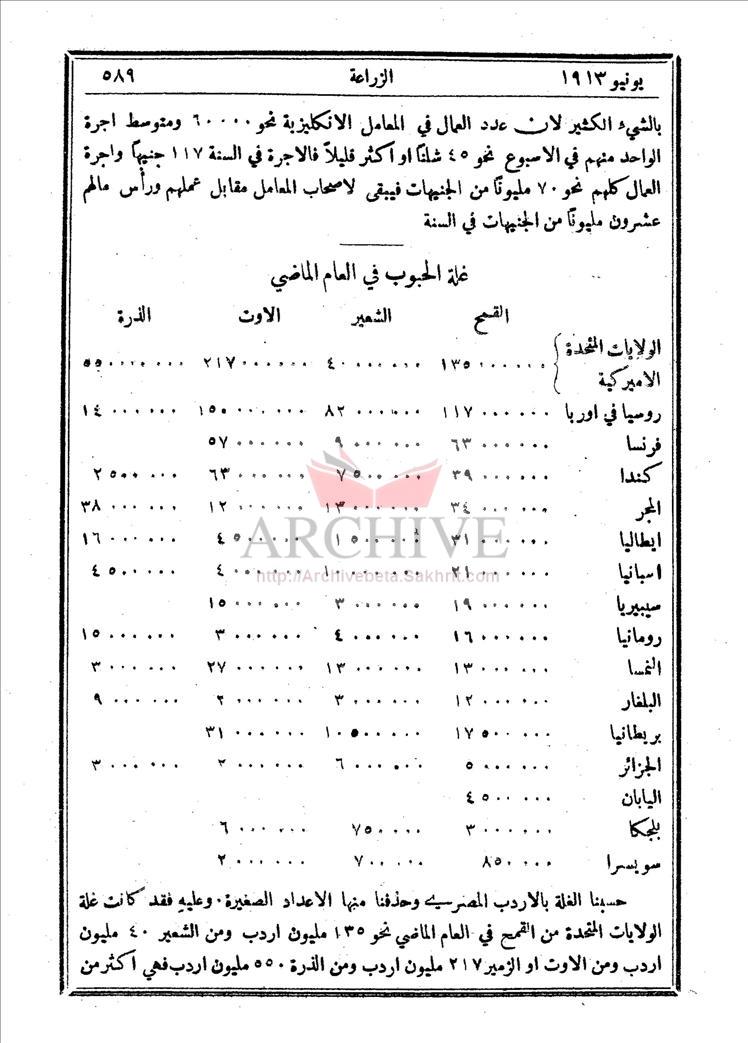 يونيو ١٩١٣ الزراعة ٥٨٩
بالشيء الكثير لان عدد العمال في المعامل الانكليزية نحو ٦٠٠٠٠٠ ومتوسط اجرة
الواحد منهم في الاسبوع نحو ٤٥ شلنًا او اكثر قليلاً فالاجرة في السنة ١١٧ جنيهًا واجرة
العمال كلهم نحو ٧٠ مليونًا من الجنيهات فيبقى لاصحاب المعامل مقابل عملهم ورأس مالهم
عشرون مليونًا من الجنيهات في السنة
غلة الحبوب في العام الماضي
القمح الشعير الاوت الذرة
الولايات المتحدة
الاميركية
١٣٥٠٠٠٠٠٠ ٤٠٠٠٠٠٠٠ ٢١٧٠٠٠٠٠٠ ٥٥٠٠٠٠٠٠٠
روسيا في اوربا ١١٧٠٠٠٠٠٠ ٨٢٠٠٠٠٠٠ ١٥٠٠٠٠٠٠٠ ١٤٠٠٠٠٠٠
فرنسا ٦٣٠٠٠٠٠٠ ٩٠٠٠٠٠٠ ٥٧٠٠٠٠٠٠
كندا ٣٩٠٠٠٠٠٠ ٧٥٠٠٠٠٠ ٦٣٠٠٠٠٠٠ ٢٥٠٠٠٠٠
المجر ٣٤٠٠٠٠٠٠ ١٣٠٠٠٠٠٠ ١٢٠٠٠٠٠٠ ٣٨٠٠٠٠٠٠
ايطاليا ٣١٠٠٠٠٠٠ ١٥٠٠٠٠٠ ٤٥٠٠٠٠٠ ١٦٠٠٠٠٠٠
ARCHIVE
اسبانيا ٢١٠٠٠٠٠٠ ١٠٠٠٠٠٠٠ ٤٠٠٠٠٠٠ ٤٥٠٠٠٠٠
http://Archivebeta.Sakhrit.com
سيبيريا ١٩٠٠٠٠٠٠ ٣٠٠٠٠٠٠ ١٥٠٠٠٠٠٠
رومانيا ١٦٠٠٠٠٠٠ ٤٠٠٠٠٠٠ ٣٠٠٠٠٠٠ ١٥٠٠٠٠٠٠
النمسا ١٣٠٠٠٠٠٠ ١٣٠٠٠٠٠٠ ٢٧٠٠٠٠٠٠ ٣٠٠٠٠٠٠
البلغار ١٢٠٠٠٠٠٠ ٣٠٠٠٠٠٠ ٢٠٠٠٠٠٠ ٩٠٠٠٠٠٠
بريطانيا ١٧٥٠٠٠٠٠ ١٠٥٠٠٠٠٠ ٣١٠٠٠٠٠٠
الجزائر ٥٠٠٠٠٠٠ ٦٠٠٠٠٠٠ ٢٠٠٠٠٠٠ ٣٠٠٠٠٠٠
اليابان ٤٥٠٠٠٠٠
بلجكا ٣٠٠٠٠٠٠ ٧٥٠٠٠٠ ٦٠٠٠٠٠٠
سويسرا ٨٥٠٠٠٠ ٧٠٠٠٠٠ ٢٠٠٠٠٠٠
حسبنا الغلة بالاردب المصري وحذفنا منها الاعداد الصغيرة. وعليهِ فقد كانت غلة
الولايات المتحدة من القمح في العام الماضي نحو ١٣٥ مليون اردب ومن الشعير ٤٠ مليون
اردب ومن الاوت او الزمير ٢١٧ مليون اردب ومن الذرة ٥٥٠ مليون اردب فهي اكثر من